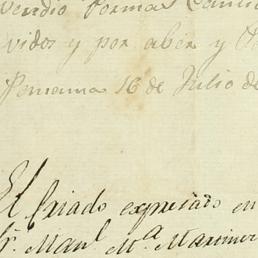 vendio Forma
vidos y por aber y
Panama 16 de Julio de
El Criado expresado en
Sr. Manl. Ma. Martinez